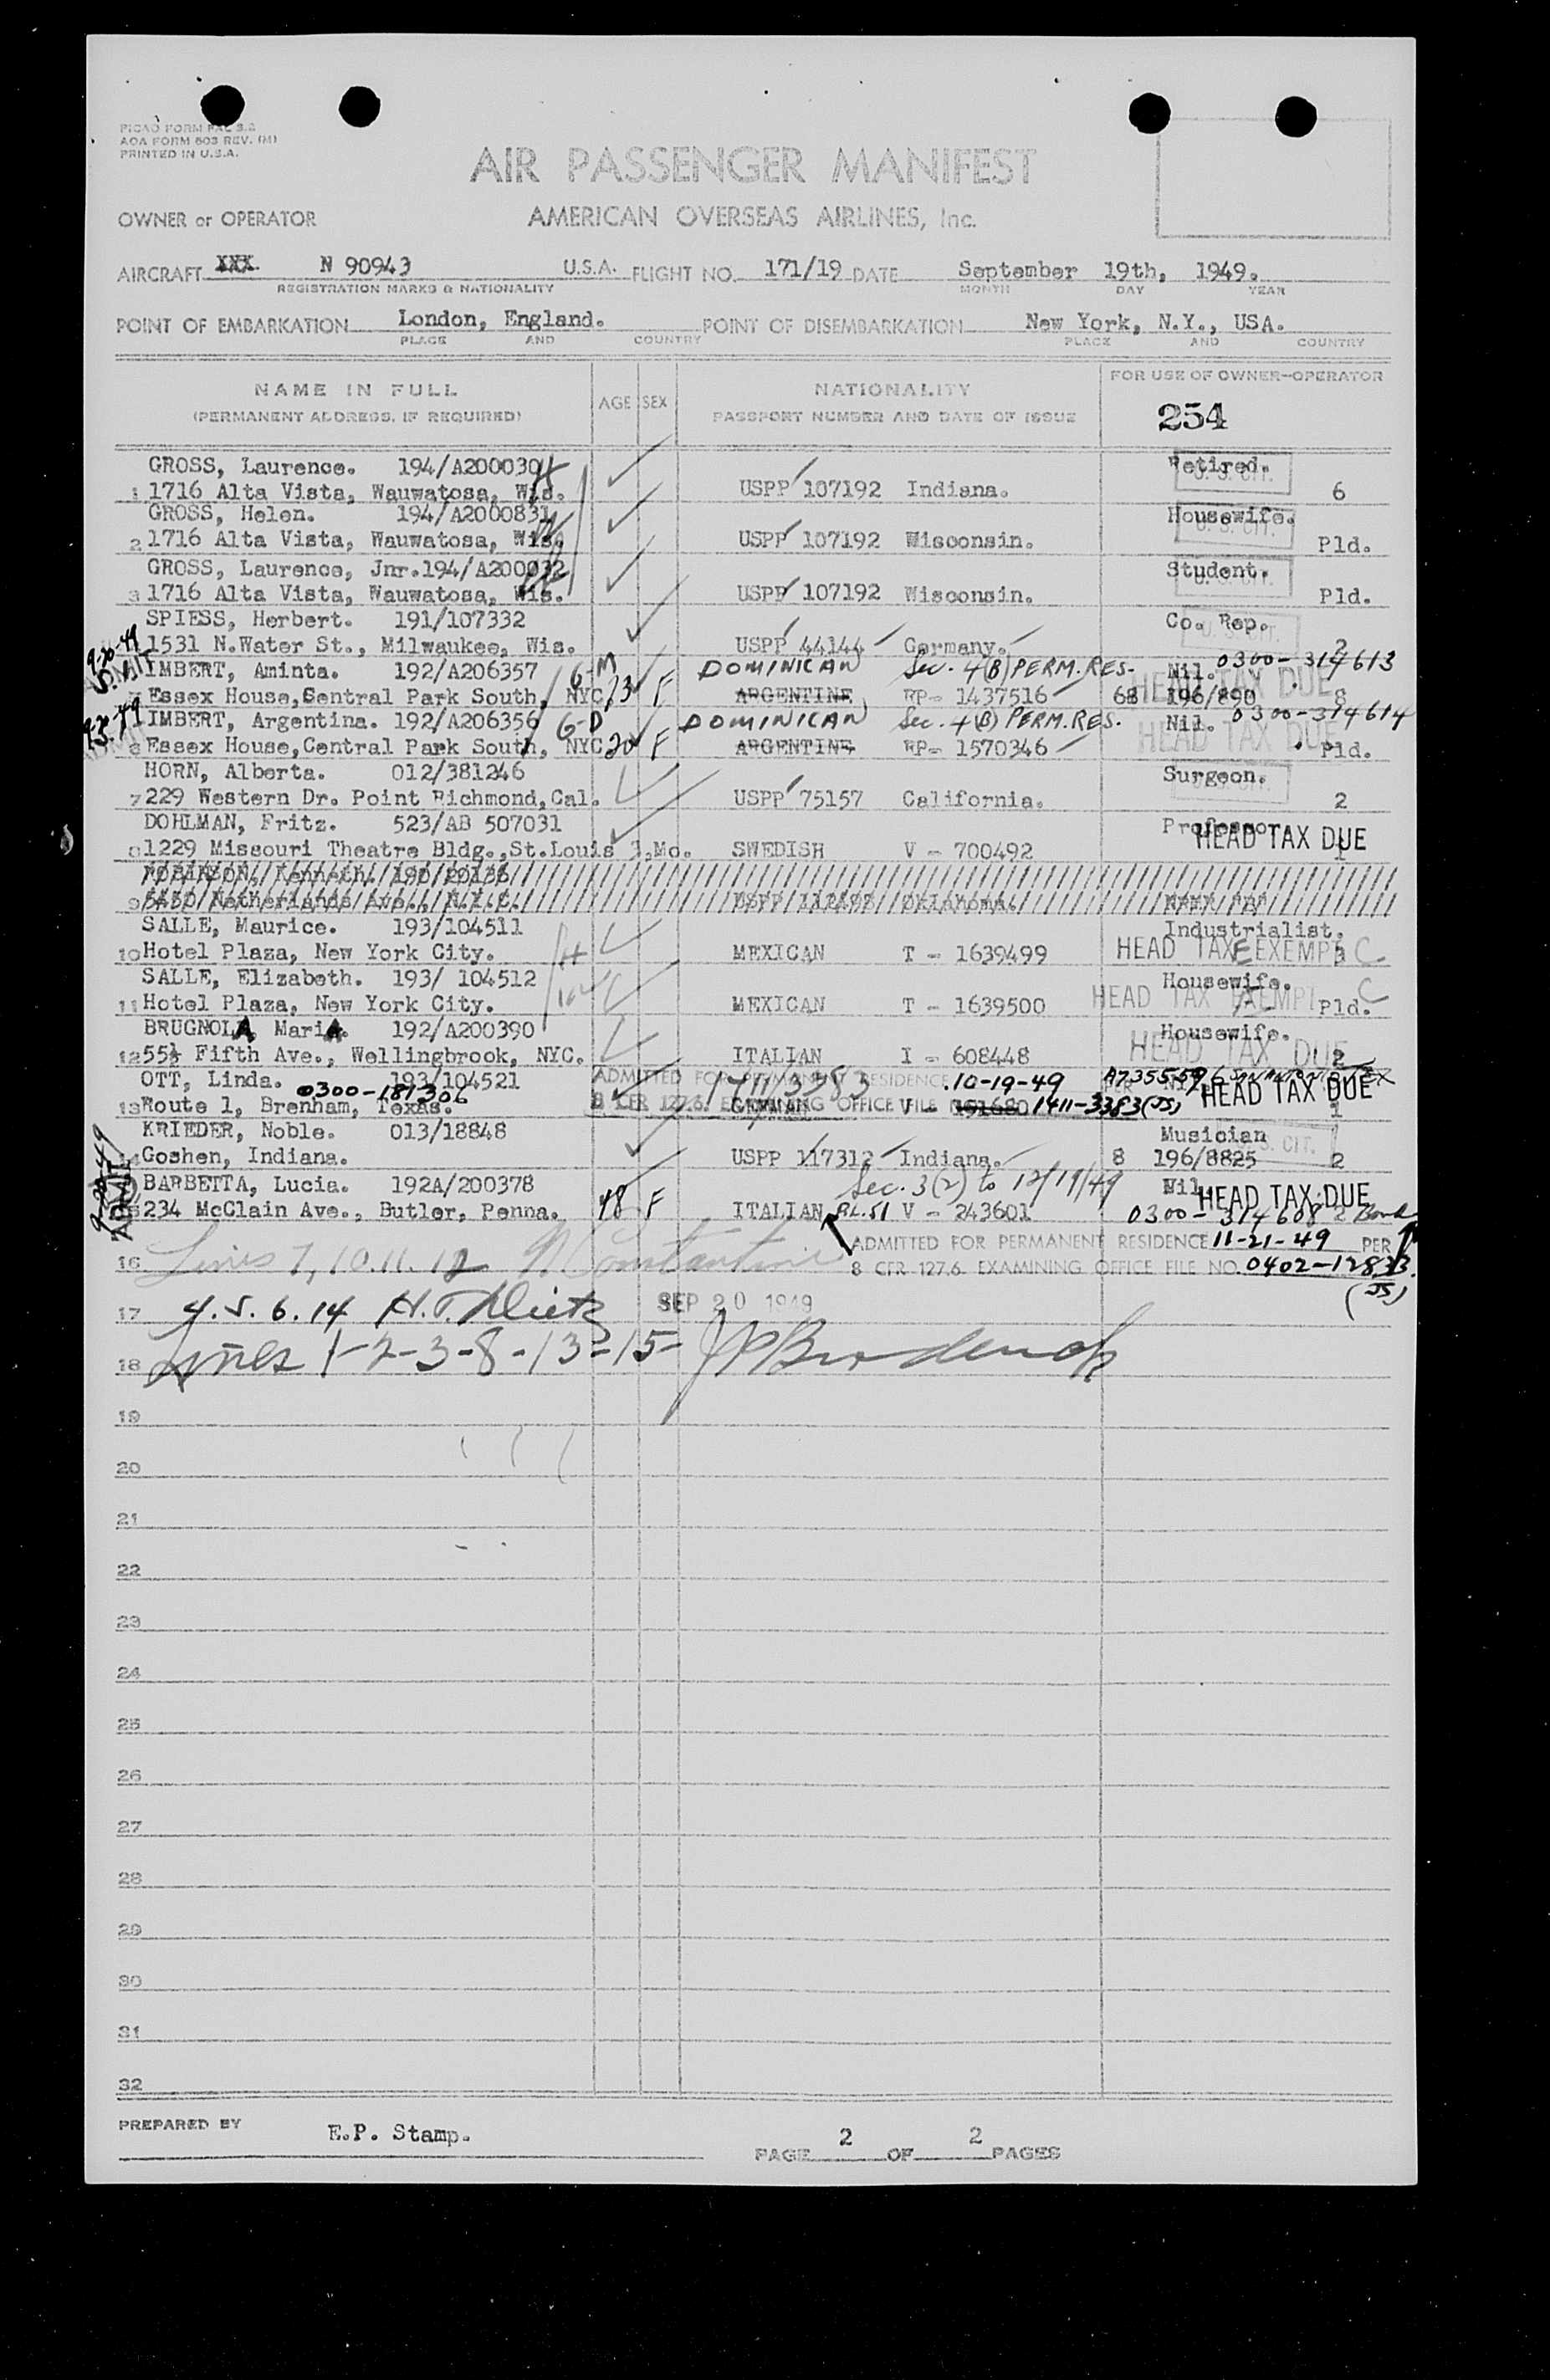 PICAO FORM FAL 3.2
AOA FORM 603 REV. (M)
PRINTED IN U.S.A.
AIR PASSENGER MANIFEST
OWNER or OPERATOR AMERICAN OVERSEAS AIRLINES, Inc.
AIRCRAFT XXX N 90943 U.S.A. FLIGHT NO. 171/19 DATE September 19th, 1949.
REGISTRATION MARKS & NATIONALITY MONTH DAY YEAR
POINT OF EMBARKATION London, England. POINT OF DISEMBARKATION New York, N.Y., USA.
PLACE AND COUNTRY PLACE AND COUNTRY
NAME IN FULL AGE SEX NATIONALITY FOR USE OF OWNER-OPERATOR
(PERMANENT ADDRESS, IF REQUIRED) PASSPORT NUMBER AND DATE OF ISSUE 254
GROSS, Laurence. 194/A200030 Retired. U.S. CIT.
1 1716 Alta Vista, Wauwatosa, Wis. USPP 107192 Indiana. 6
GROSS, Helen. 194/A2000831 Housewife. U.S. CIT.
2 1716 Alta Vista, Wauwatosa, Wis. USPP 107192 Wisconsin. Pld.
GROSS, Laurence, Jnr. 194/A200032 Student. U.S. CIT.
3 1716 Alta Vista, Wauwatosa, Wis. USPP 107192 Wisconsin. Pld.
SPIESS, Herbert. 191/107332 Co. Rep. U.S. CIT.
1531 N.Water St., Milwaukee, Wis. USPP 44144 Germany. 2
9-20-49 ADMIT IMBERT, Aminta. 192/A206357 G-M DOMINICAN Sec. 4(B) PERM. RES. Nil. 0300-314613
Essex House, Sentral Park South, NYC 73 F ARGENTINE RP- 1437516 68 196/890 8 HEAD TAX DUE
IMBERT, Argentina. 192/A206356 G-D DOMINICAN Sec. 4(B) PERM. RES. Nil. 0300-314614
6 Essex House, Central Park South, NYC 20 F ARGENTINE RP- 1570346 HEAD TAX DUE Pld.
HORN, Alberta. 012/381246 Surgeon. U.S. CIT.
7 229 Western Dr. Point Richmond, Cal. USPP 75157 California. 2
DOHLMAN, Fritz. 523/AB 507031 Professor HEAD TAX DUE
8 1229 Missouri Theatre Bldg., St.Louis 3, Mo. SWEDISH V - 700492 1
ROBINSON, Kenneth. 190/20136
9 5430 Netherlands Ave., N.Y.C. USPP Oklahoma.
SALLE, Maurice. 193/104511 Industrialist.
10 Hotel Plaza, New York City. H MEXICAN T - 1639499 HEAD TAX EXEMPT C
SALLE, Elizabeth. 193/ 104512 Housewife.
11 Hotel Plaza, New York City. MEXICAN T - 1639500 HEAD TAX EXEMPT Pld. C
BRUGNOLA Maria. 192/A200390 Housewife.
12 55½ Fifth Ave., Wellingbrook, NYC. ITALIAN I - 608448 HEAD TAX DUE 2
OTT, Linda. 193/104521 ADMITTED FOR PERMANENT RESIDENCE 10-19-49 PER
0300-181306 1411/3383
13 Route 1, Brenham, Texas. 8 CFR 127.6. EXAMINING OFFICE FILE NO. GERMAN V - 1411-3383 (JS) HEAD TAX DUE 1
KRIEDER, Noble. 013/18848 Musician U.S. CIT.
Goshen, Indiana. USPP 117312 Indiana. 8 196/8825 2
BARBETTA, Lucia. 192A/200378 Sec. 3(2) to 12/19/49 Nil. HEAD TAX DUE
9-20-49 ADMIT 234 McClain Ave., Butler, Penna. 48 F ITALIAN P.L. 51 V - 243601 0300-314608 2 Bond
ADMITTED FOR PERMANENT RESIDENCE 11-21-49 PER
16 Lines 7, 10. 11. 12 M Constantine 8 CFR 127.6. EXAMINING OFFICE FILE NO. 0402-12833. (JS)
17 4. 5. 6. 14 SEP 20 1949
18 Lines 1-2-3-8-13-15-
19
20
21
22
23
24
25
26
27
28
29
30
31
32
PREPARED BY E.P. Stamp.
PAGE 2 OF 2 PAGES